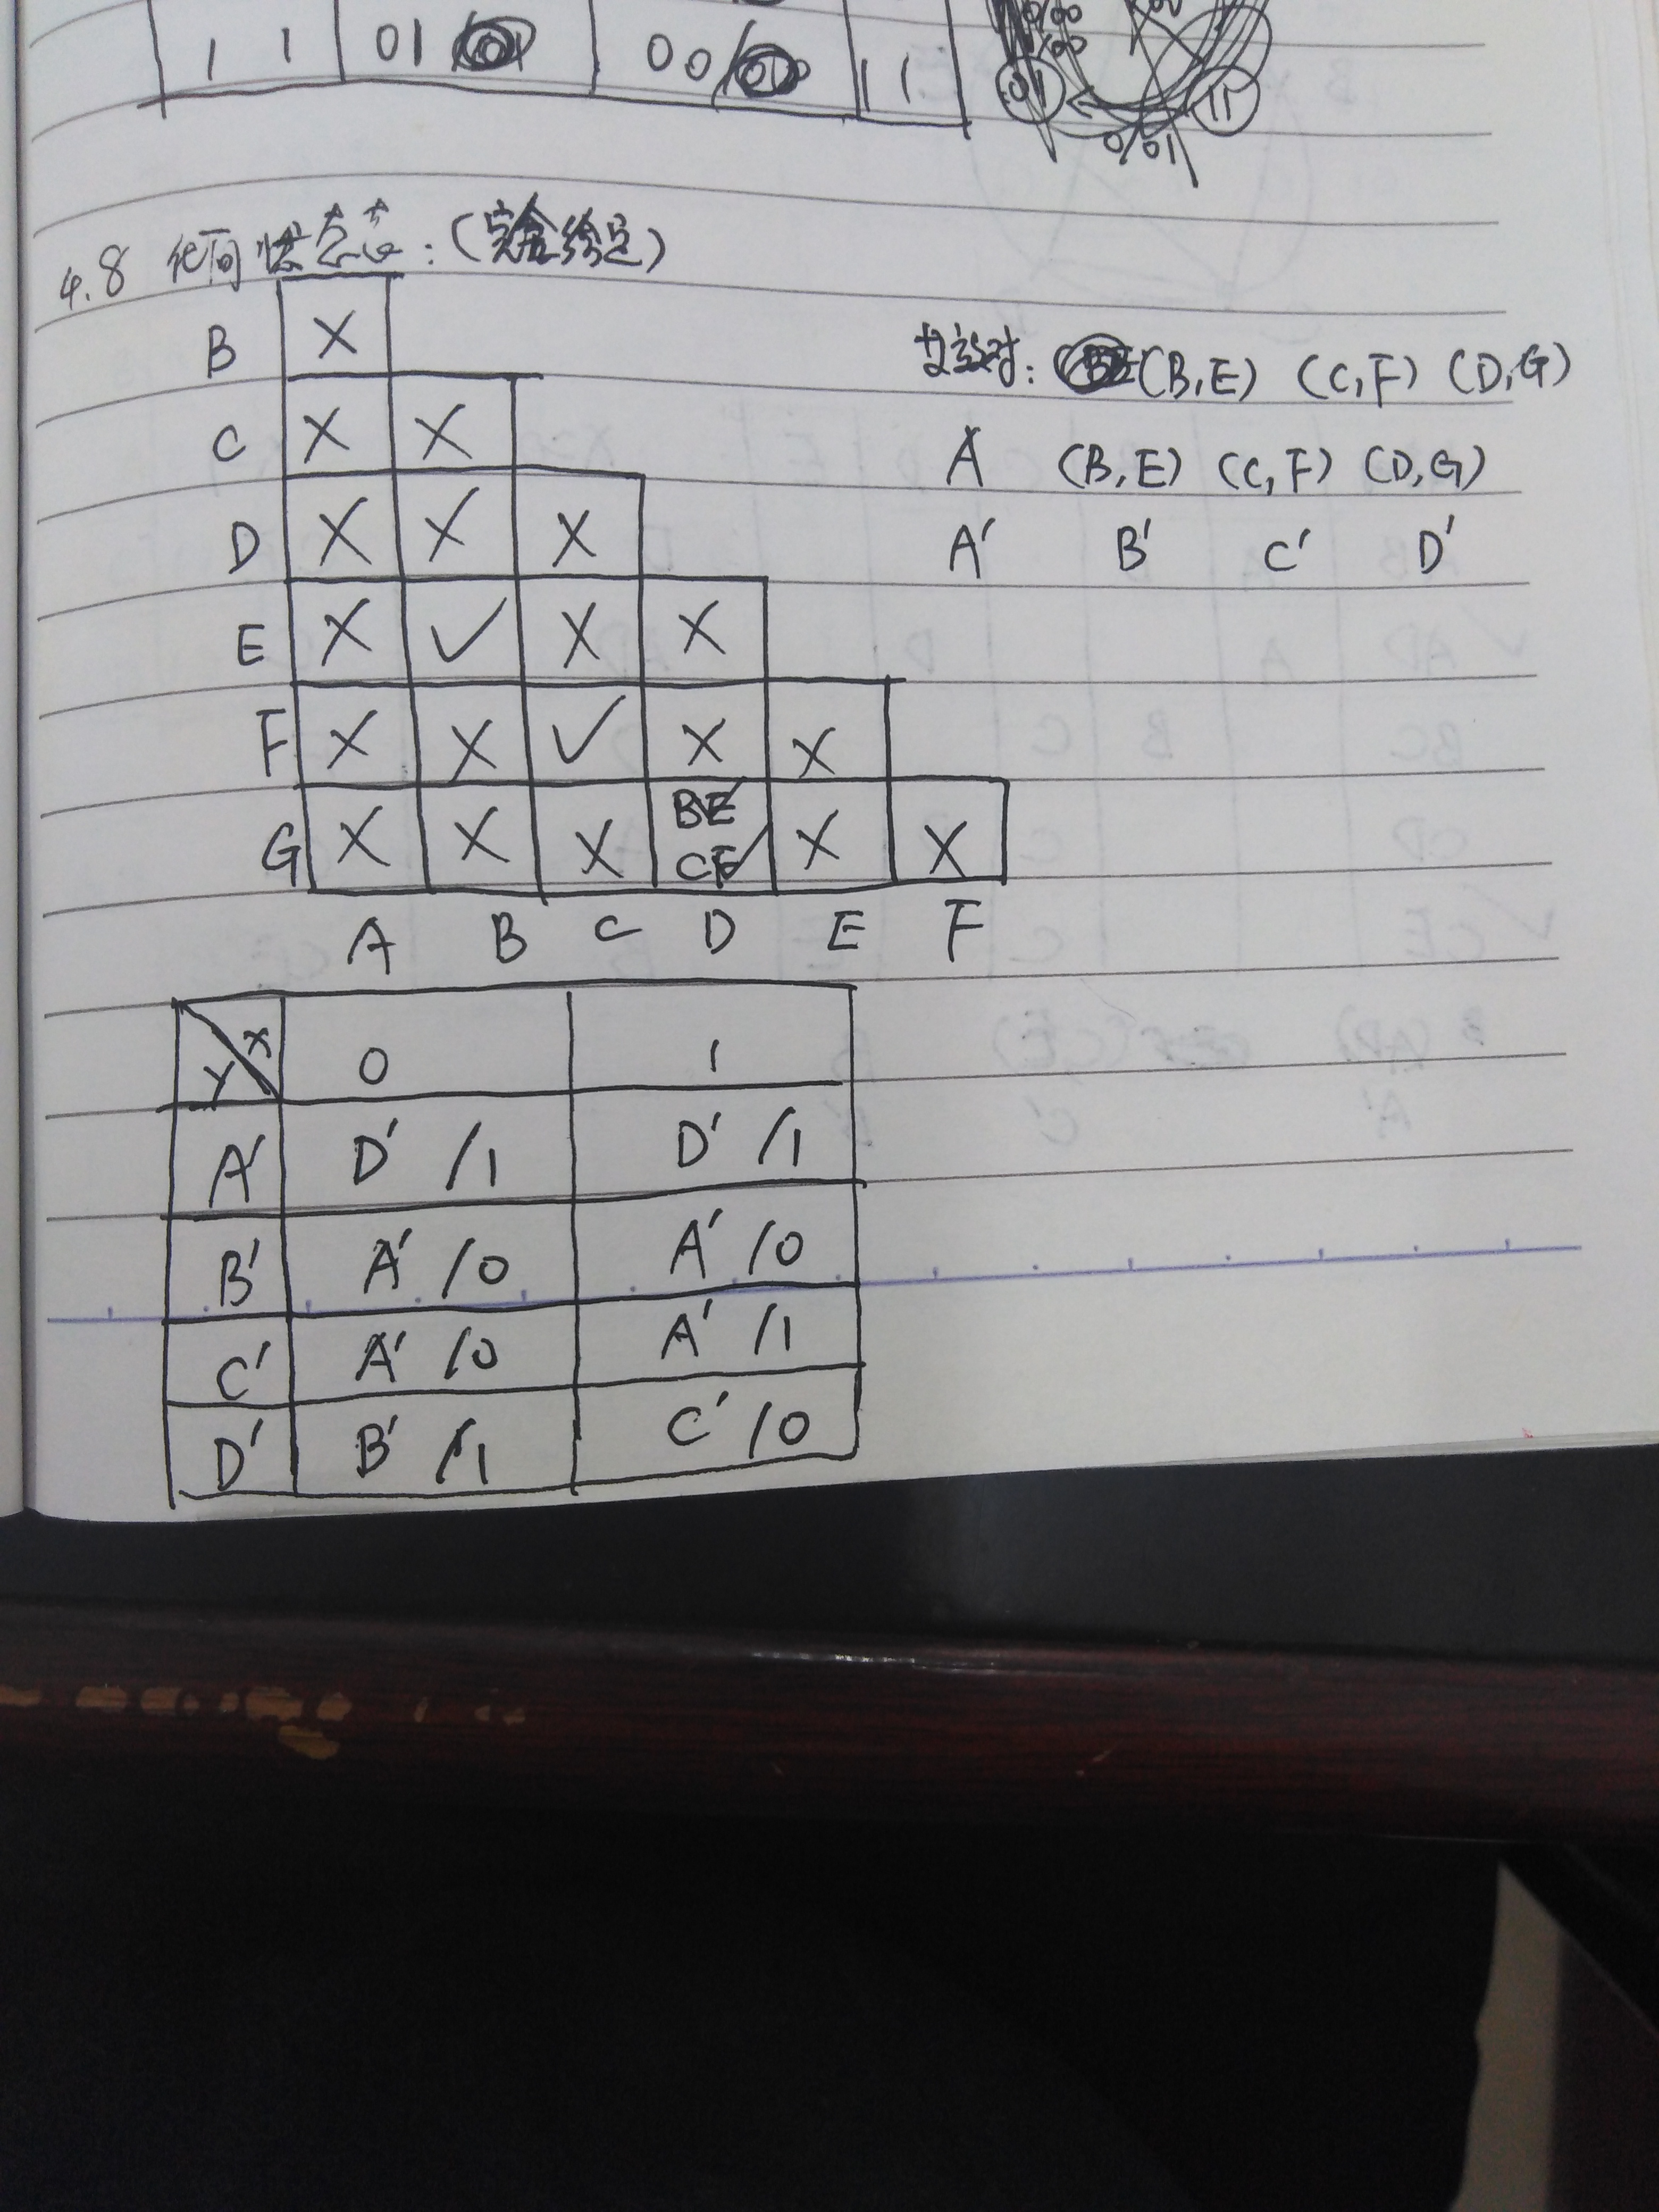 1 1 01 00/ 11 01 11
0/00
0/00
0/01
4.8 化简状态表：（完全给定）
B X
C X X
D X X X
E X ✓ X X
F X X ✓ X X
G X X X BE✓ CF✓ X X
A B C D E F
等效对: (B,E) (C,F) (D,G)
A (B,E) (C,F) (D,G)
A' B' C' D'
Y X 0 1
A' D' /1 D' /1
B' A' /0 A' /0
C' A' /0 A' /1
D' B' /1 C' /0